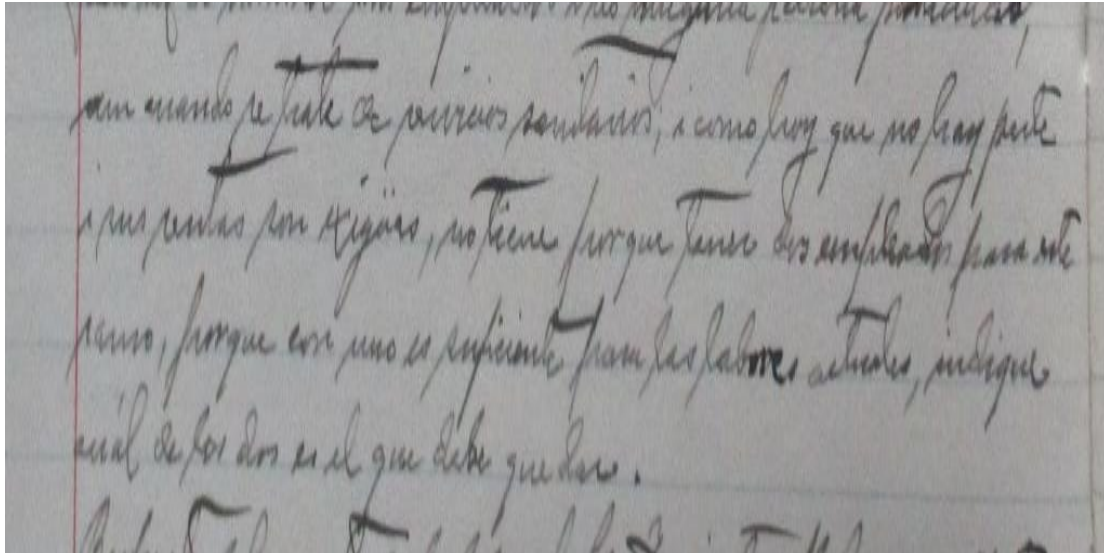 ninguna persona
aun cuando se trate de servicios sanitarios; i como hoy que no hay peste
i sus rentas son exigüas, no tiene porque tener dos empleados para este
ramo, porque con uno es suficiente para las labores actuales, indique
cuál de los dos es el que debe quedar.